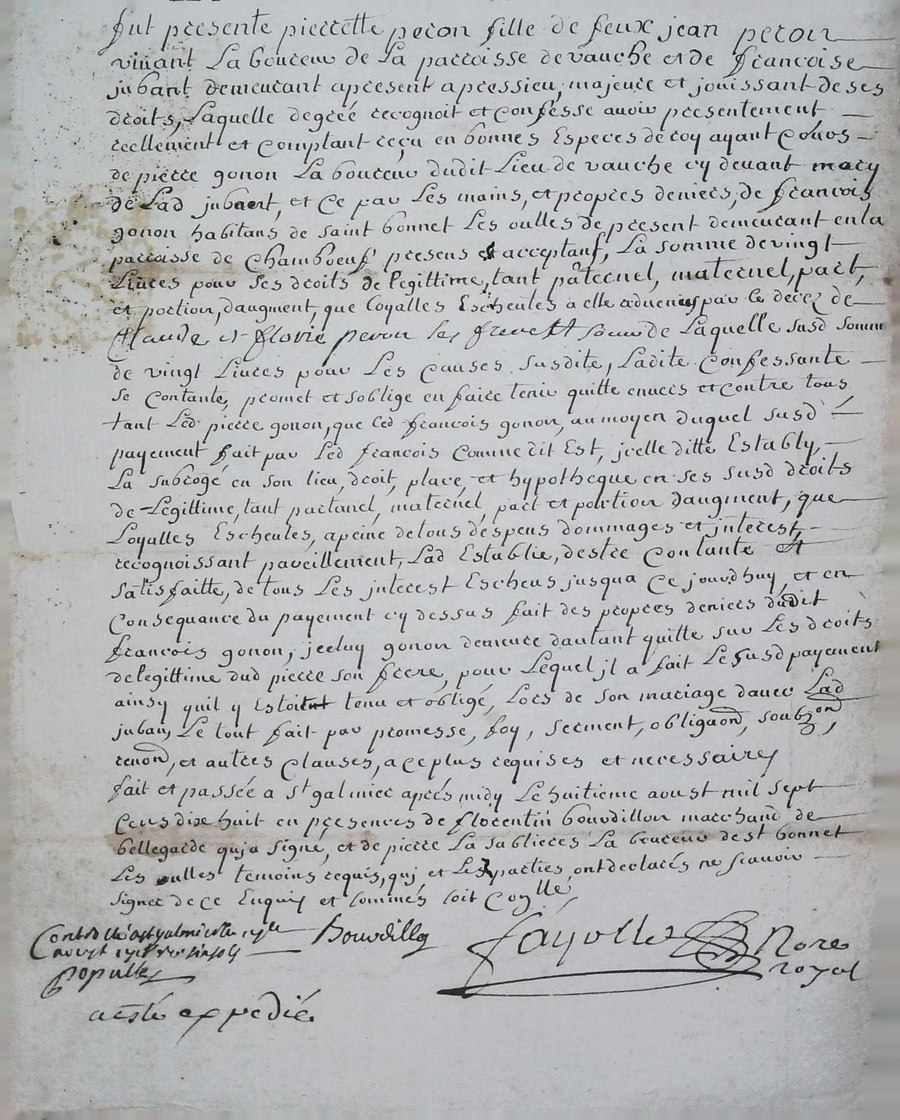 fut presente pierrette peron fille de feux jean peron
vivant Laboureur de La parroisse devauche et de francoise
jubant demeurant apresent apressieu, majeure et jouissant de ses
droits, Laquelle degréé recognoit et confesse avoir presentement
reellement et comptant reçu en bonnes Especes de roy ayant Cours
de pierre gonon Laboureur dudit Lieu de vauche cy devant mary
de Lad jubant, et ce par Les mains, et propres deniers, de francois
gonon habitans de saint bonnet Les oulles de present demeurant en la
parroisse de Chamboeuf presens et acceptant, La somme de vingt
Livres pour ses droits de legittime, tant paternel, maternel, part,
et portion, daugment, que Loyalles Escheules a elle advenus par le decez de
Claude et florie peron ses frere et soeur de Laquelle susd somme
de vingt Livres pour Les Causes susdite, Ladite Confessante
se Contante, promet et soblige en faire tenir quitte envers et contre tous
tant Led pierre gonon, que Led francois gonon, au moyen duquel susd
payement fait par Led francois Comme dit Est, jcelle ditte Establie,
La subrogé en son lieu, droit, place, et hypotheque en ses susd droits
de Legittime, tant partanel, maternel, part et portion daugment, que
Loyalles Escheules, apeine detous despens dommages et interest,
recognoissant pareillement, Lad Establie, destre Contante et
satisfaitte, de tous Les jnterest Escheus jusqua Ce jourdhuy, et en
Consequance du payement cy dessus fait des propres deniers dudit
francois gonon, jceluy gonon demeure dautant quitte sur Les droits
delegittime dud pierre son frere, pour Lequel jl a fait Le susd payement
ainsy quil y Estoint tenu et obligé, Lors de son mariage davec Lad
juban, Le tout fait par promesse, foy, serment, obligaon, soubzon,
renon, et autres Clauses, a ce plus requises et necessaires
fait et passée a st galmier apres midy Le huitieme aoust mil sept
Cens dixe huit en presences de florentin bourdillon marchand de
bellegarde quj a signé, et de pierre La sablieres Laboureur de st bonnet
Les oulles temoins requis, quj et Les parties, ont declarés ne scavoir
signer de ce Enquis et sommés soit Coqllé
Bourdillon
fayolles Nore
royal
a esté expedié